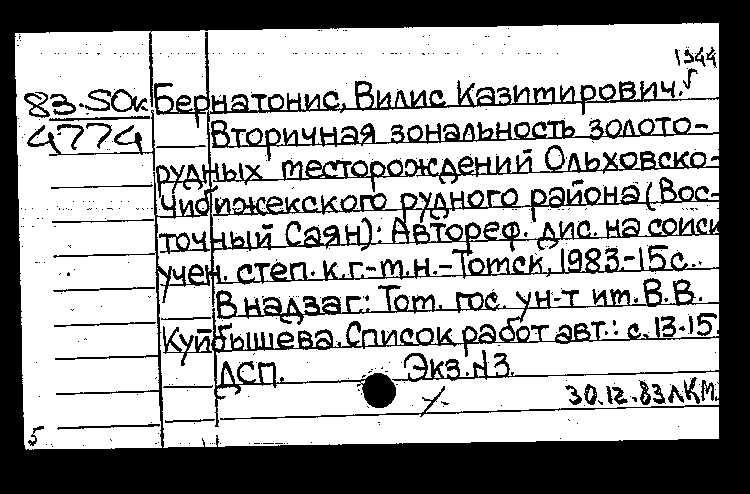 1944
83-5Ок Бернатонис, Вилис Казимирович.
4774 Вторичная зональность золото-
рудных месторождений Ольховско-
Чибижекского рудного района (Вос-
точный Саян): Автореф. дис. на соиск
учен. степ. к.г.-м.н.-Томск, 1983.-15 с..
В надзаг.: Том. гос. ун-т им. В.В.
Куйбышева. Список работ авт.: с. 13-15.
ДСП. Экз. №3.
30.12.83 ЛКМ.
5